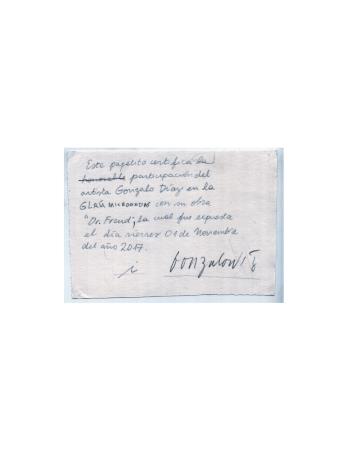 Este papelito certifica la
honorable participación del
artista Gonzalo Díaz en la
GLAÍA MICROONDAS con su obra
"Dr. Freud", la cual fue expuesta
el día viernes 01 de Noviembre
del año 2017.